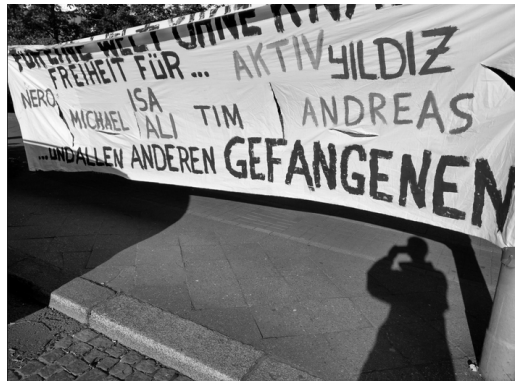 FÜR EINE WELT OHNE KNA
FREIHEIT FÜR... AKTIV YILDIZ
NERO ISA
MICHAEL ALI TIM ANDREAS
...UND ALLEN ANDEREN GEFANGENEN